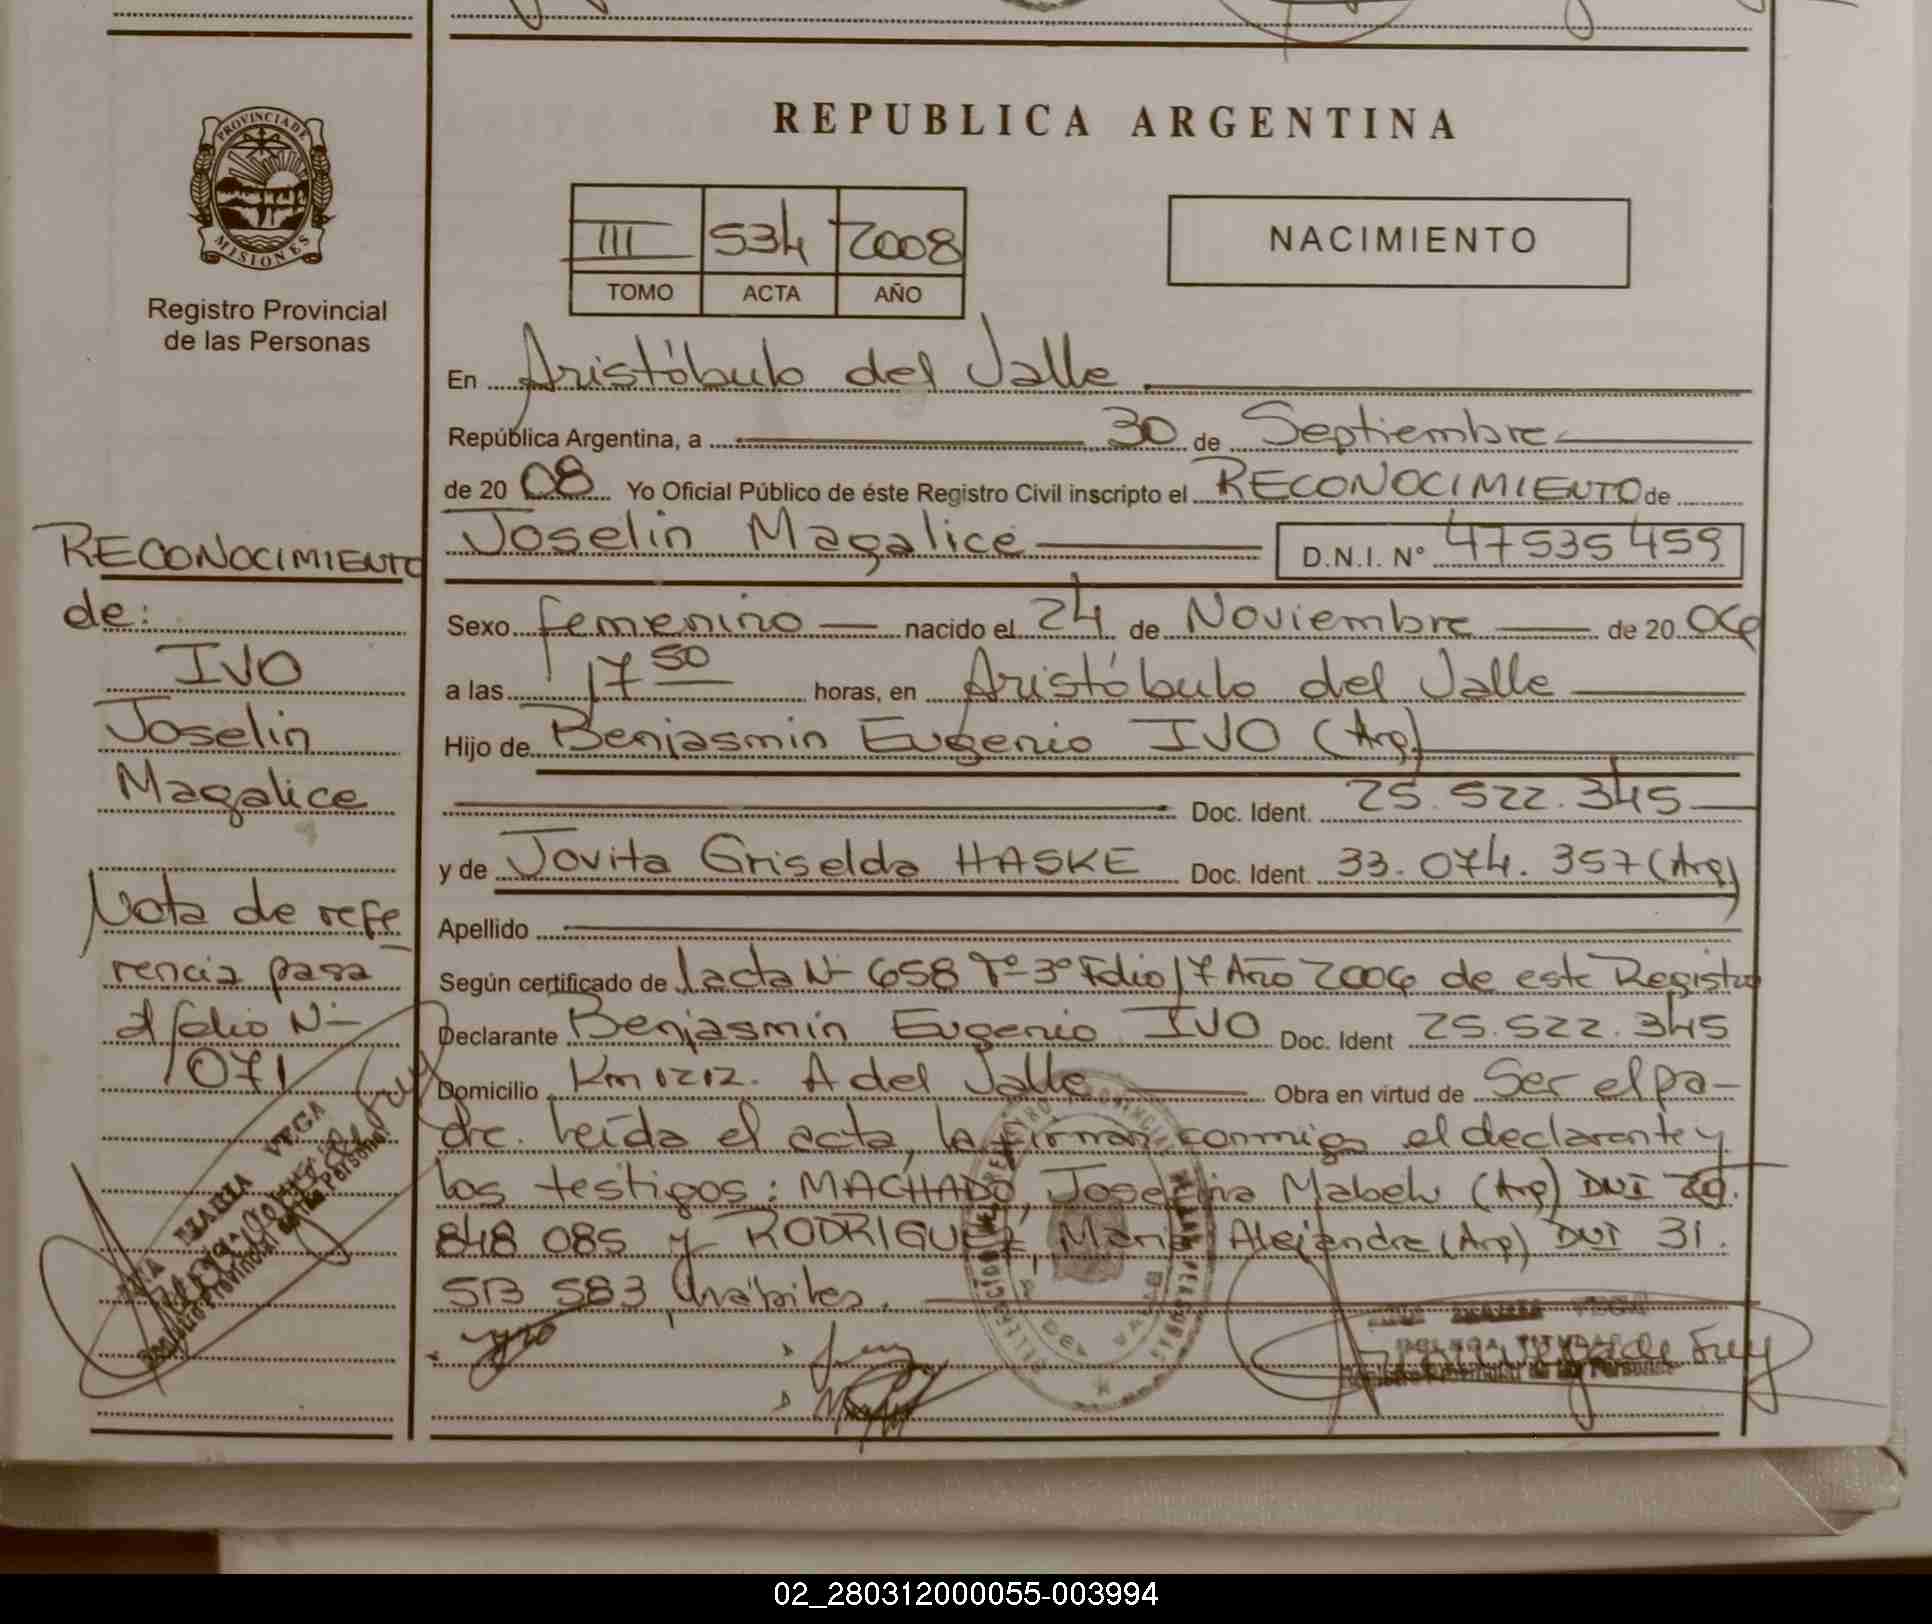 REPUBLICA ARGENTINA
PROVINCIA DE MISIONES
Registro Provincial
de las Personas
III 534 2008
TOMO ACTA AÑO
NACIMIENTO
En Aristóbulo del Valle
República Argentina, a 30 de Septiembre
de 2008 Yo Oficial Público de éste Registro Civil inscripto el RECONOCIMIENTO de
Joselin Magalice D.N.I. N° 47535459
Sexo femenino nacido el 24 de Noviembre de 2006
a las 17 50 horas, en Aristóbulo del Valle
Hijo de Benjasmin Eugenio IVO (Arg)
Doc. Ident. 25.522.345
y de Jovita Griselda HASKE Doc. Ident. 33.074.357 (Arg)
Apellido
Según certificado de acta N- 658 T°-3° Folio 17 Año 2006 de este Registro
Declarante Benjasmin Eugenio IVO Doc. Ident 25.522.345
Domicilio Km 1212. A del Valle Obra en virtud de Ser el pa-
dre. Leída el acta, la firman conmigo el declarante y
los testigos: MACHADO, Josefina Mabel (Arg) DNI
848 085 y RODRIGUEZ, Maria Alejandra (Arg) DNI 31.
513 583 hábiles.
RECONOCIMIENTO
de:
IVO
Joselin
Magalice
Nota de refe
rencia pasa
al folio N-
071
02_280312000055-003994